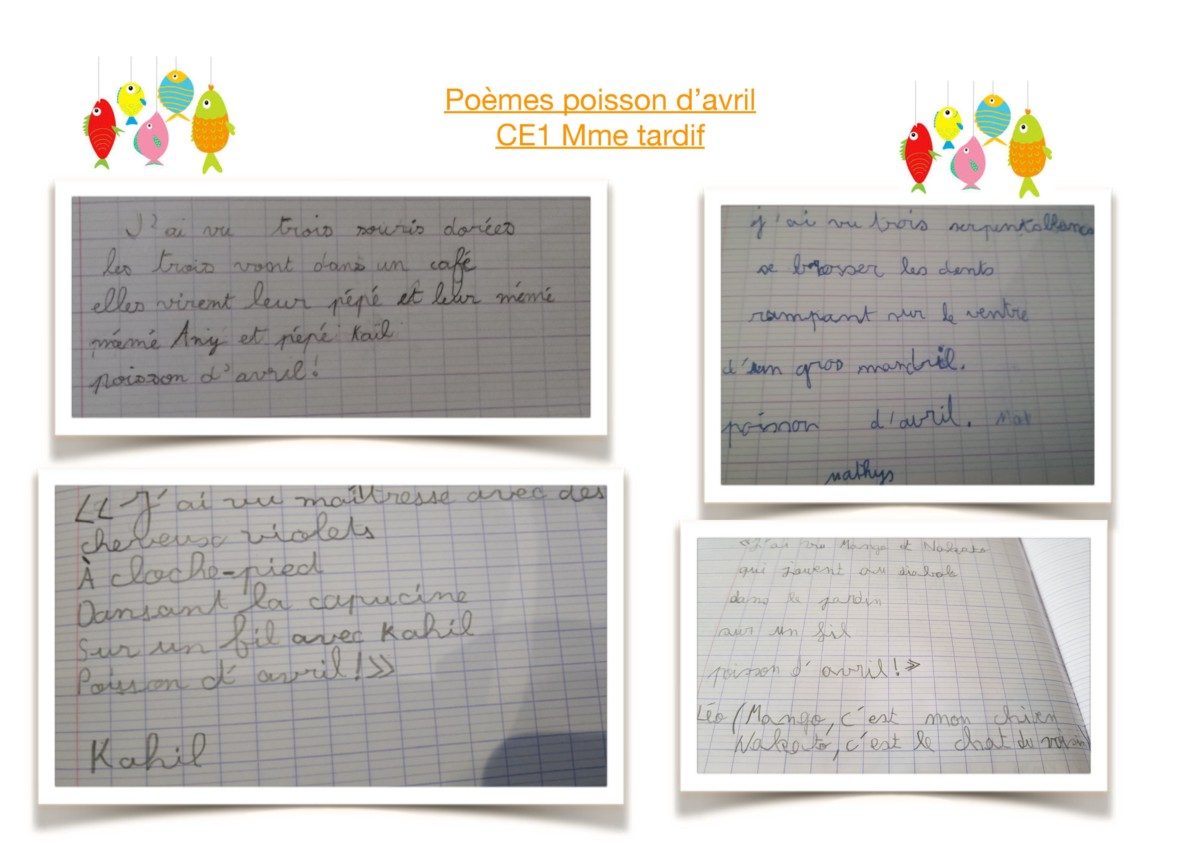 Poèmes poisson d'avril
CE1 Mme tardif
J'ai vu trois souris dorées
les trois vont dans un café
elles virent leur pépé et leur mémé
mémé Any et pépé Kaïl
poisson d'avril!
j'ai vu trois
se brosser les dents
rampant sur le ventre
d'un gros mandril.
poisson d'avril. Mat
mathys
<< J'ai vu maîtresse avec des
cheveuse violets
À cloche-pied
Dansant la capucine
Sur un fil avec Kahil
Poisson d'avril!>>
Kahil
«J'ai vu Mango et
qui jouent au
dans le jardin
sur un fil
poisson d'avril!»
Léo (Mango, c'est mon chien
c'est le chat du voisin